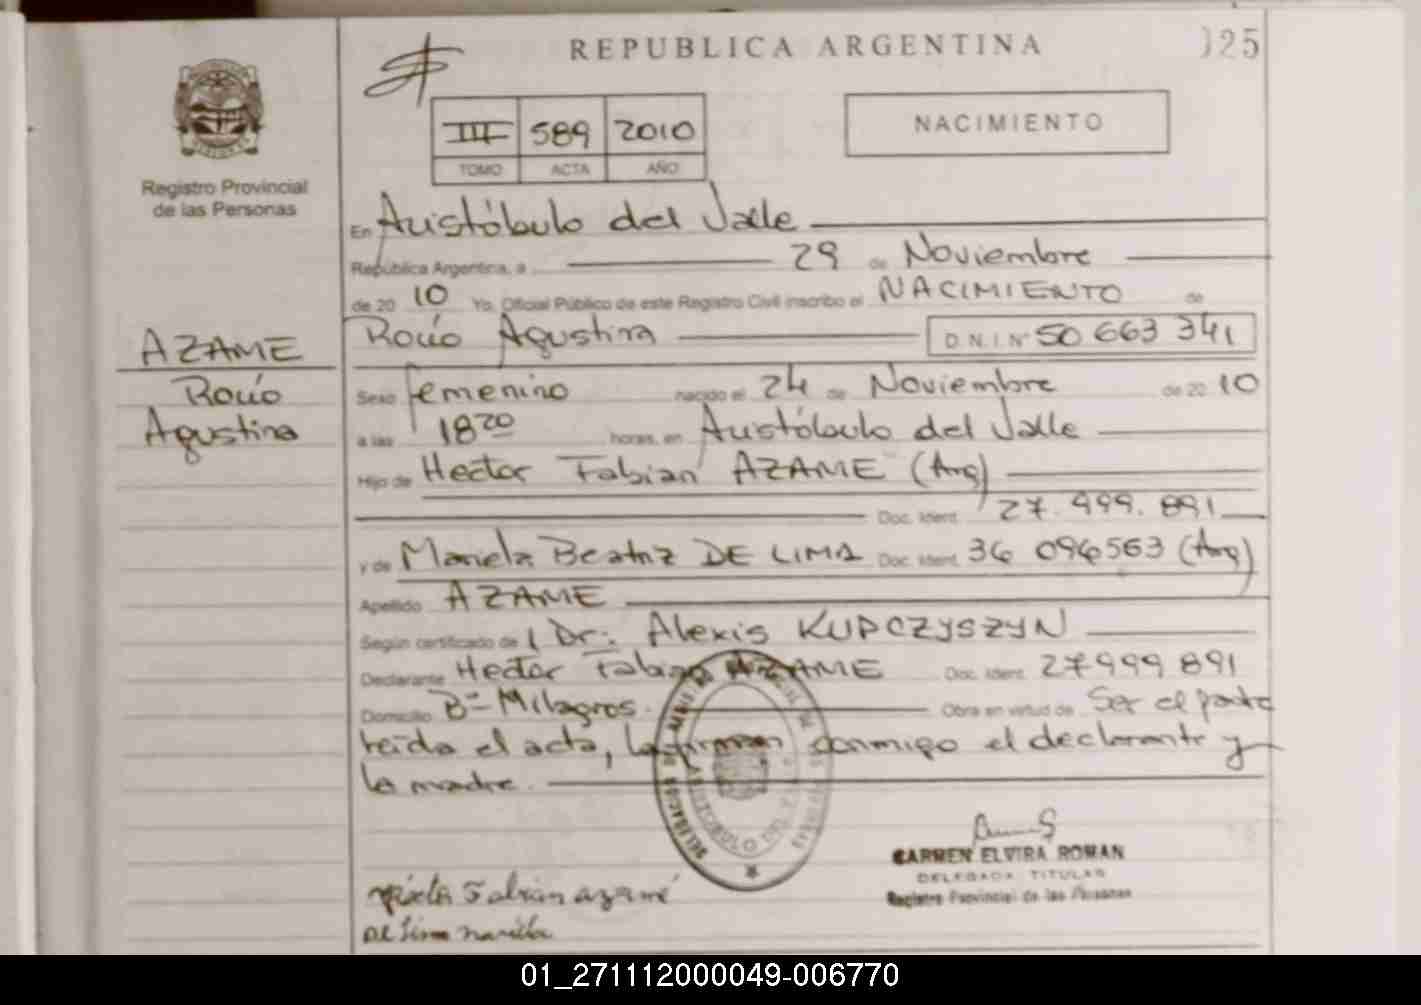 REPUBLICA ARGENTINA
125
III 589 2010
TOMO ACTA AÑO
NACIMIENTO
Registro Provincial
de las Personas
En Aristóbulo del Valle
República Argentina, a 29 de Noviembre
de 20 10 Yo, Oficial Público de este Registro Civil inscribo el NACIMIENTO de
Rocío Agustina D.N.I. Nº 50 663 341
AZAME
Rocío
Agustina
Sexo femenino nacido el 24 de Noviembre de 20 10
a las 18 20 horas, en Aristóbulo del Valle
Hijo de Hector Fabian AZAME (Arg)
Doc. Ident. 27.999.891
y de Mariela Beatriz DE LIMA Doc. Ident. 36 096563 (Arg)
Apellido AZAME
Según certificado de Dr. Alexis KUPCZYSZYN
Declarante Hector Fabian AZAME Doc. Ident. 27999 891
Domicilio Bº Milagros. Obra en virtud de Ser el padre
leída el acta, la firman conmigo el declarante y
la madre.
CARMEN ELVIRA ROMAN
DELEGADA TITULAR
Registro Provincial de las Personas
Fabian azame
De lima mariela
01_271112000049-006770